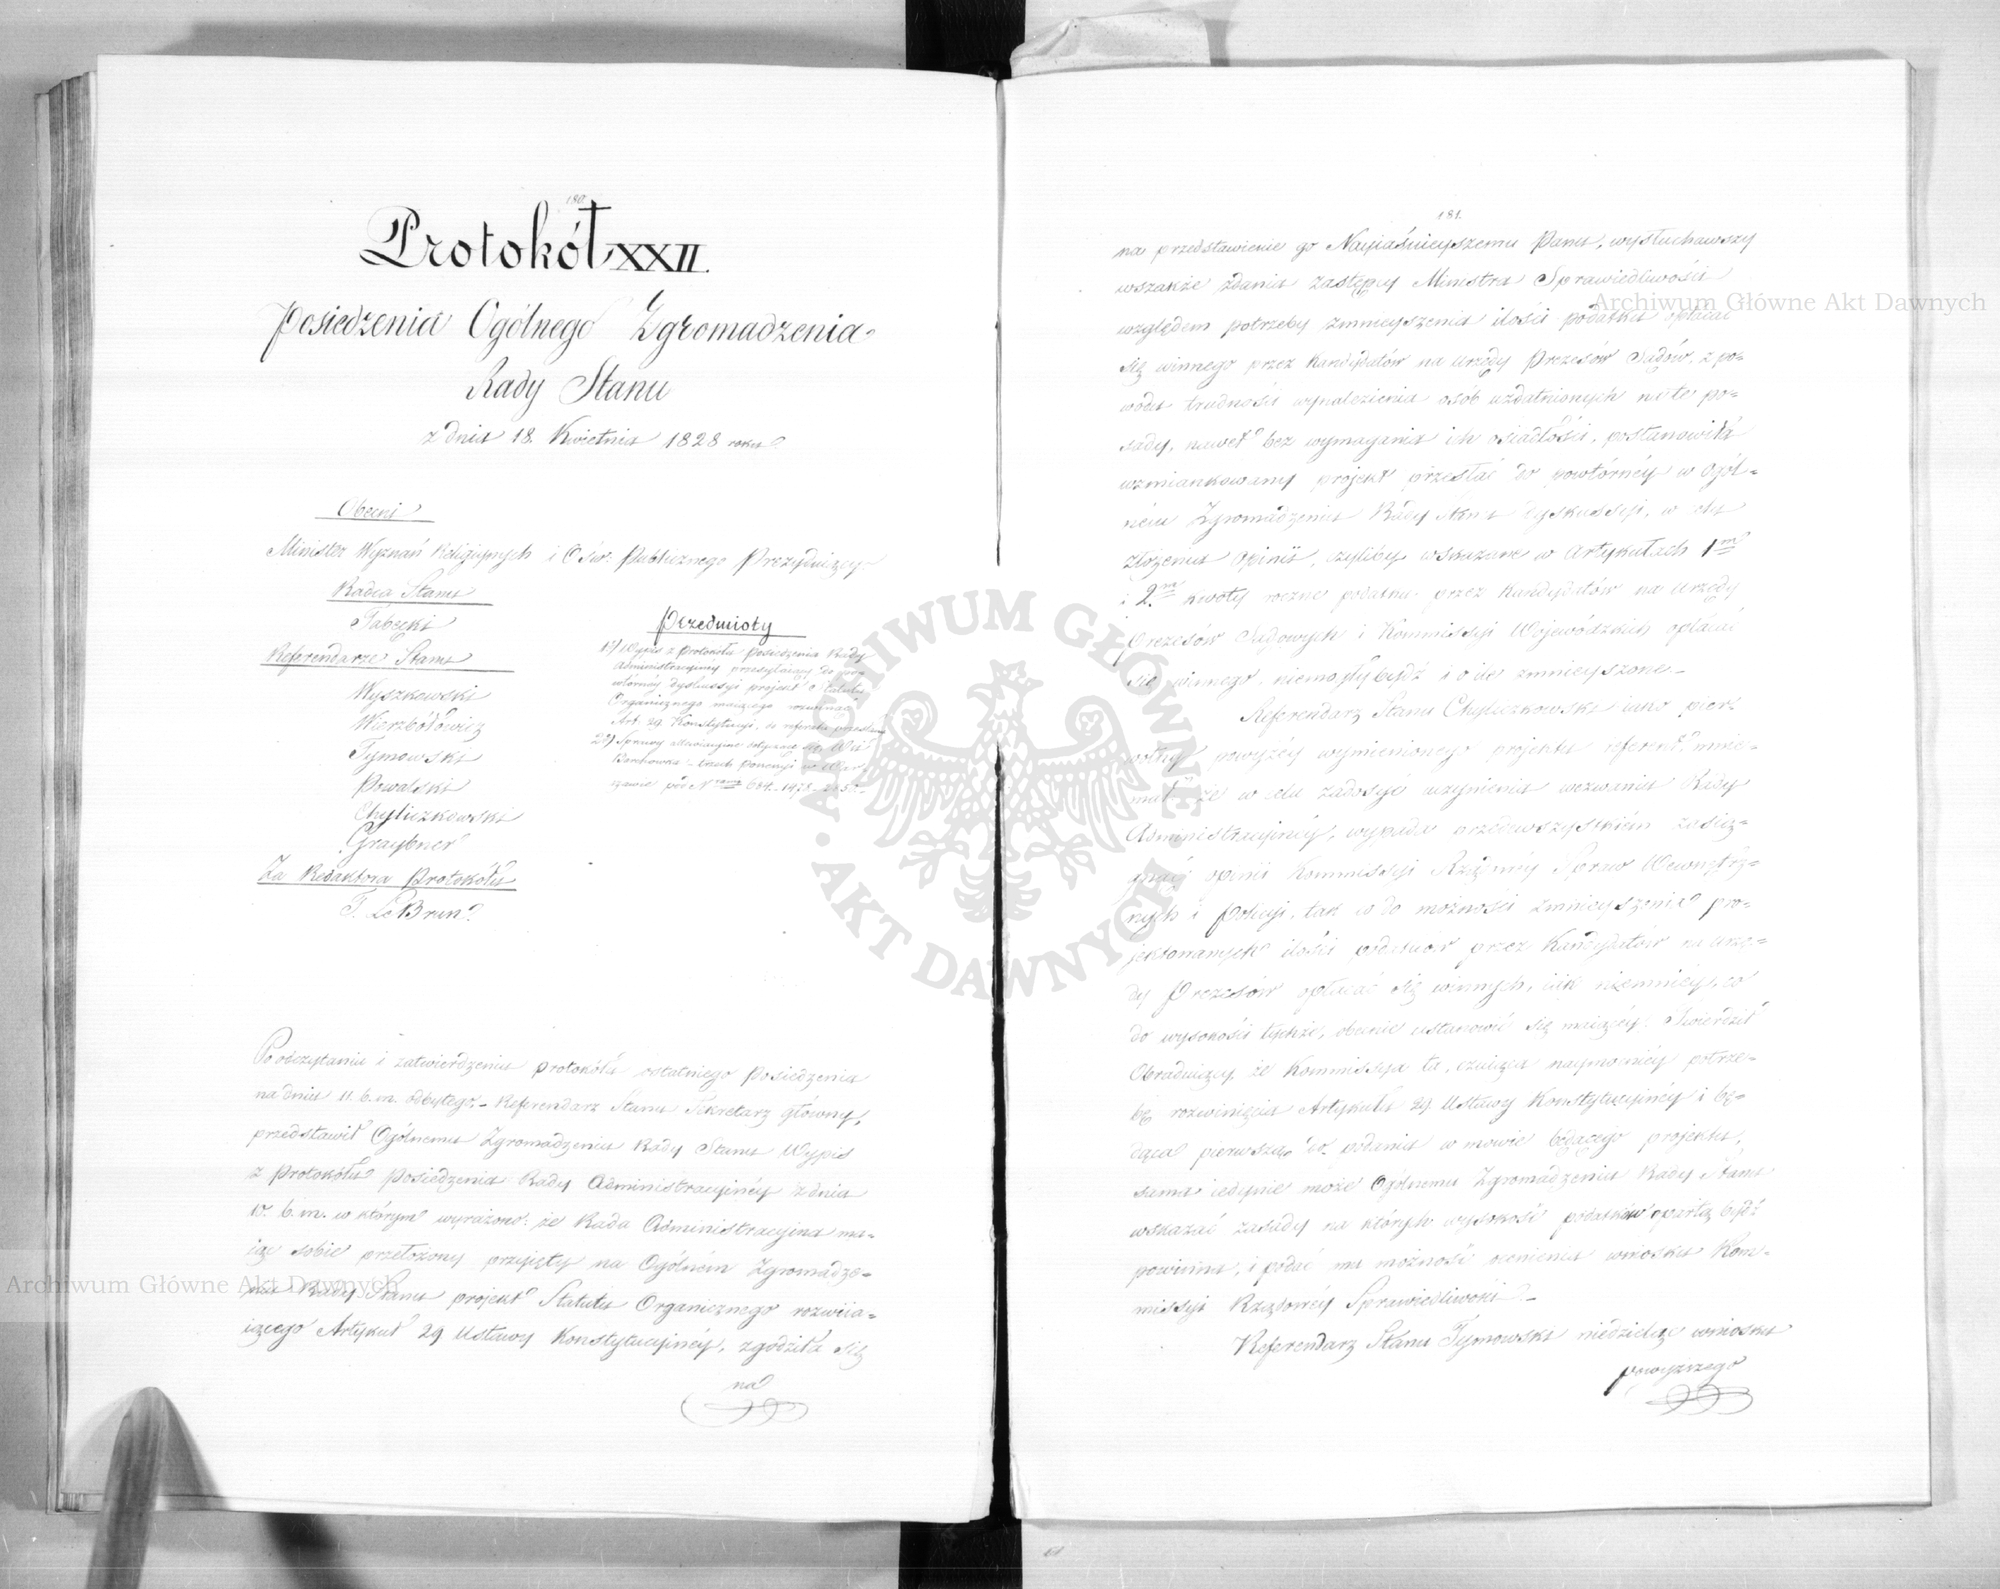 180.
Protokół XXII.
Posiedzenia Ogólnego Zgromadzenia
Rady Stanu
z dnia 18. Kwietnia 1828 roku
Obecni
Minister Wyznań Religijnych i Ośw: Publicznego Prezydujący
Radca Stanu
Tabęcki
Referendarze Stanu
Wyszkowski
Wierzbołowicz
Tymowski
Powalski
Chyliczkowski
Graybner
Za Redaktora Protokółu
T. Le Brun
Przedmioty
1º) Wypis z Protokółu Posiedzenia Rady
Administracyjnéy przesyłaiący do po-
wtórnéy dyskussyi projekt Statutu
Organicznego maiącego rozwinąć
Art. 29. Konstytucyi,
2º) Sprawy
pod Nrami 684. 1478.
Po odczytaniu i zatwierdzeniu protokółu ostatniego Posiedzenia
na dniu 11. b. m. odbytego, – Referendarz Stanu Sekretarz Główny,
przedstawił Ogólnemu Zgromadzeniu Rady Stanu Wypis
z Protokółu Posiedzenia Rady Administracyinéy z dnia
15. b. m. w którym wyrażono: że Rada Administracyina ma-
iąc sobie przełożony przyięty na Ogólném Zgromadze-
niu Rady Stanu projekt Statutu Organicznego rozwiia-
iącego Artykuł 29 Ustawy Konstytucyinéy, zgodziła się
na
181.
na przedstawienie go Nayiaśnieyszemu Panu, wysłuchawszy
wszakże zdania zastępcy Ministra Sprawiedliwości
względem potrzeby zmnieyszenia ilości podatku opłacać
się winnego przez Kandydatów na urzędy Prezesów Sądów, z po-
wodu trudności wynalezienia osób uzdatnionych na te po-
sady, nawet bez wymagania ich osiadłości, postanowiła
wzmiankowany projekt przesłać do powtórnéy w Ogól-
ném Zgromadzeniu Rady Stanu dyskussyi, w celu
złożenia Opinii, czyliby wskazane w Artykułach 1m
i 2m kwoty roczne podatku przez Kandydatów na urzędy
Prezesów Sądowych i Kommissyi Woiewódzkich opłacać
się winnego, niemogły bydź i o ile zmnieyszone –
Referendarz Stanu Chyliczkowski iako pier-
wotny powyżéy wymienionego projektu referent, mnie-
mał że w celu zadosyć uczynienia wezwaniu Rady
Administracyinéy, wypada przedewszystkiem zasią-
gnąć opinii Kommissyi Rządowéy Spraw Wewnętrz-
nych i Policyi, tak co do możności zmnieyszenia pro-
jektowanych ilości podatków przez Kandydatów na urzę-
dy Prezesów opłacać się winnych, iak niemniéy, co
do wysokości tychże, obecnie ustanowić się maiącéy. Twierdził
Obraduiący, że Kommissya ta, czuiąca naymocniéy potrze-
bę rozwinięcia Artykułu 29. Ustawy Konstytucyinéy i bę-
dąca pierwszą do podania w mowie będącego projektu,
sama iedynie może Ogólnemu Zgromadzeniu Rady Stanu
wskazać zasady na których wysokość podatków opartą bydź
powinna, i podać mu możność ocenienia wniosku Kom-
missyi Rządowéy Sprawiedliwości. –
Referendarz Stanu Tymowski niedzieląc wniosku
powyższego
Archiwum Główne Akt Dawnych
Archiwum Główne Akt Dawnych
ARCHIWUM GŁÓWNE · AKT DAWNYCH ·